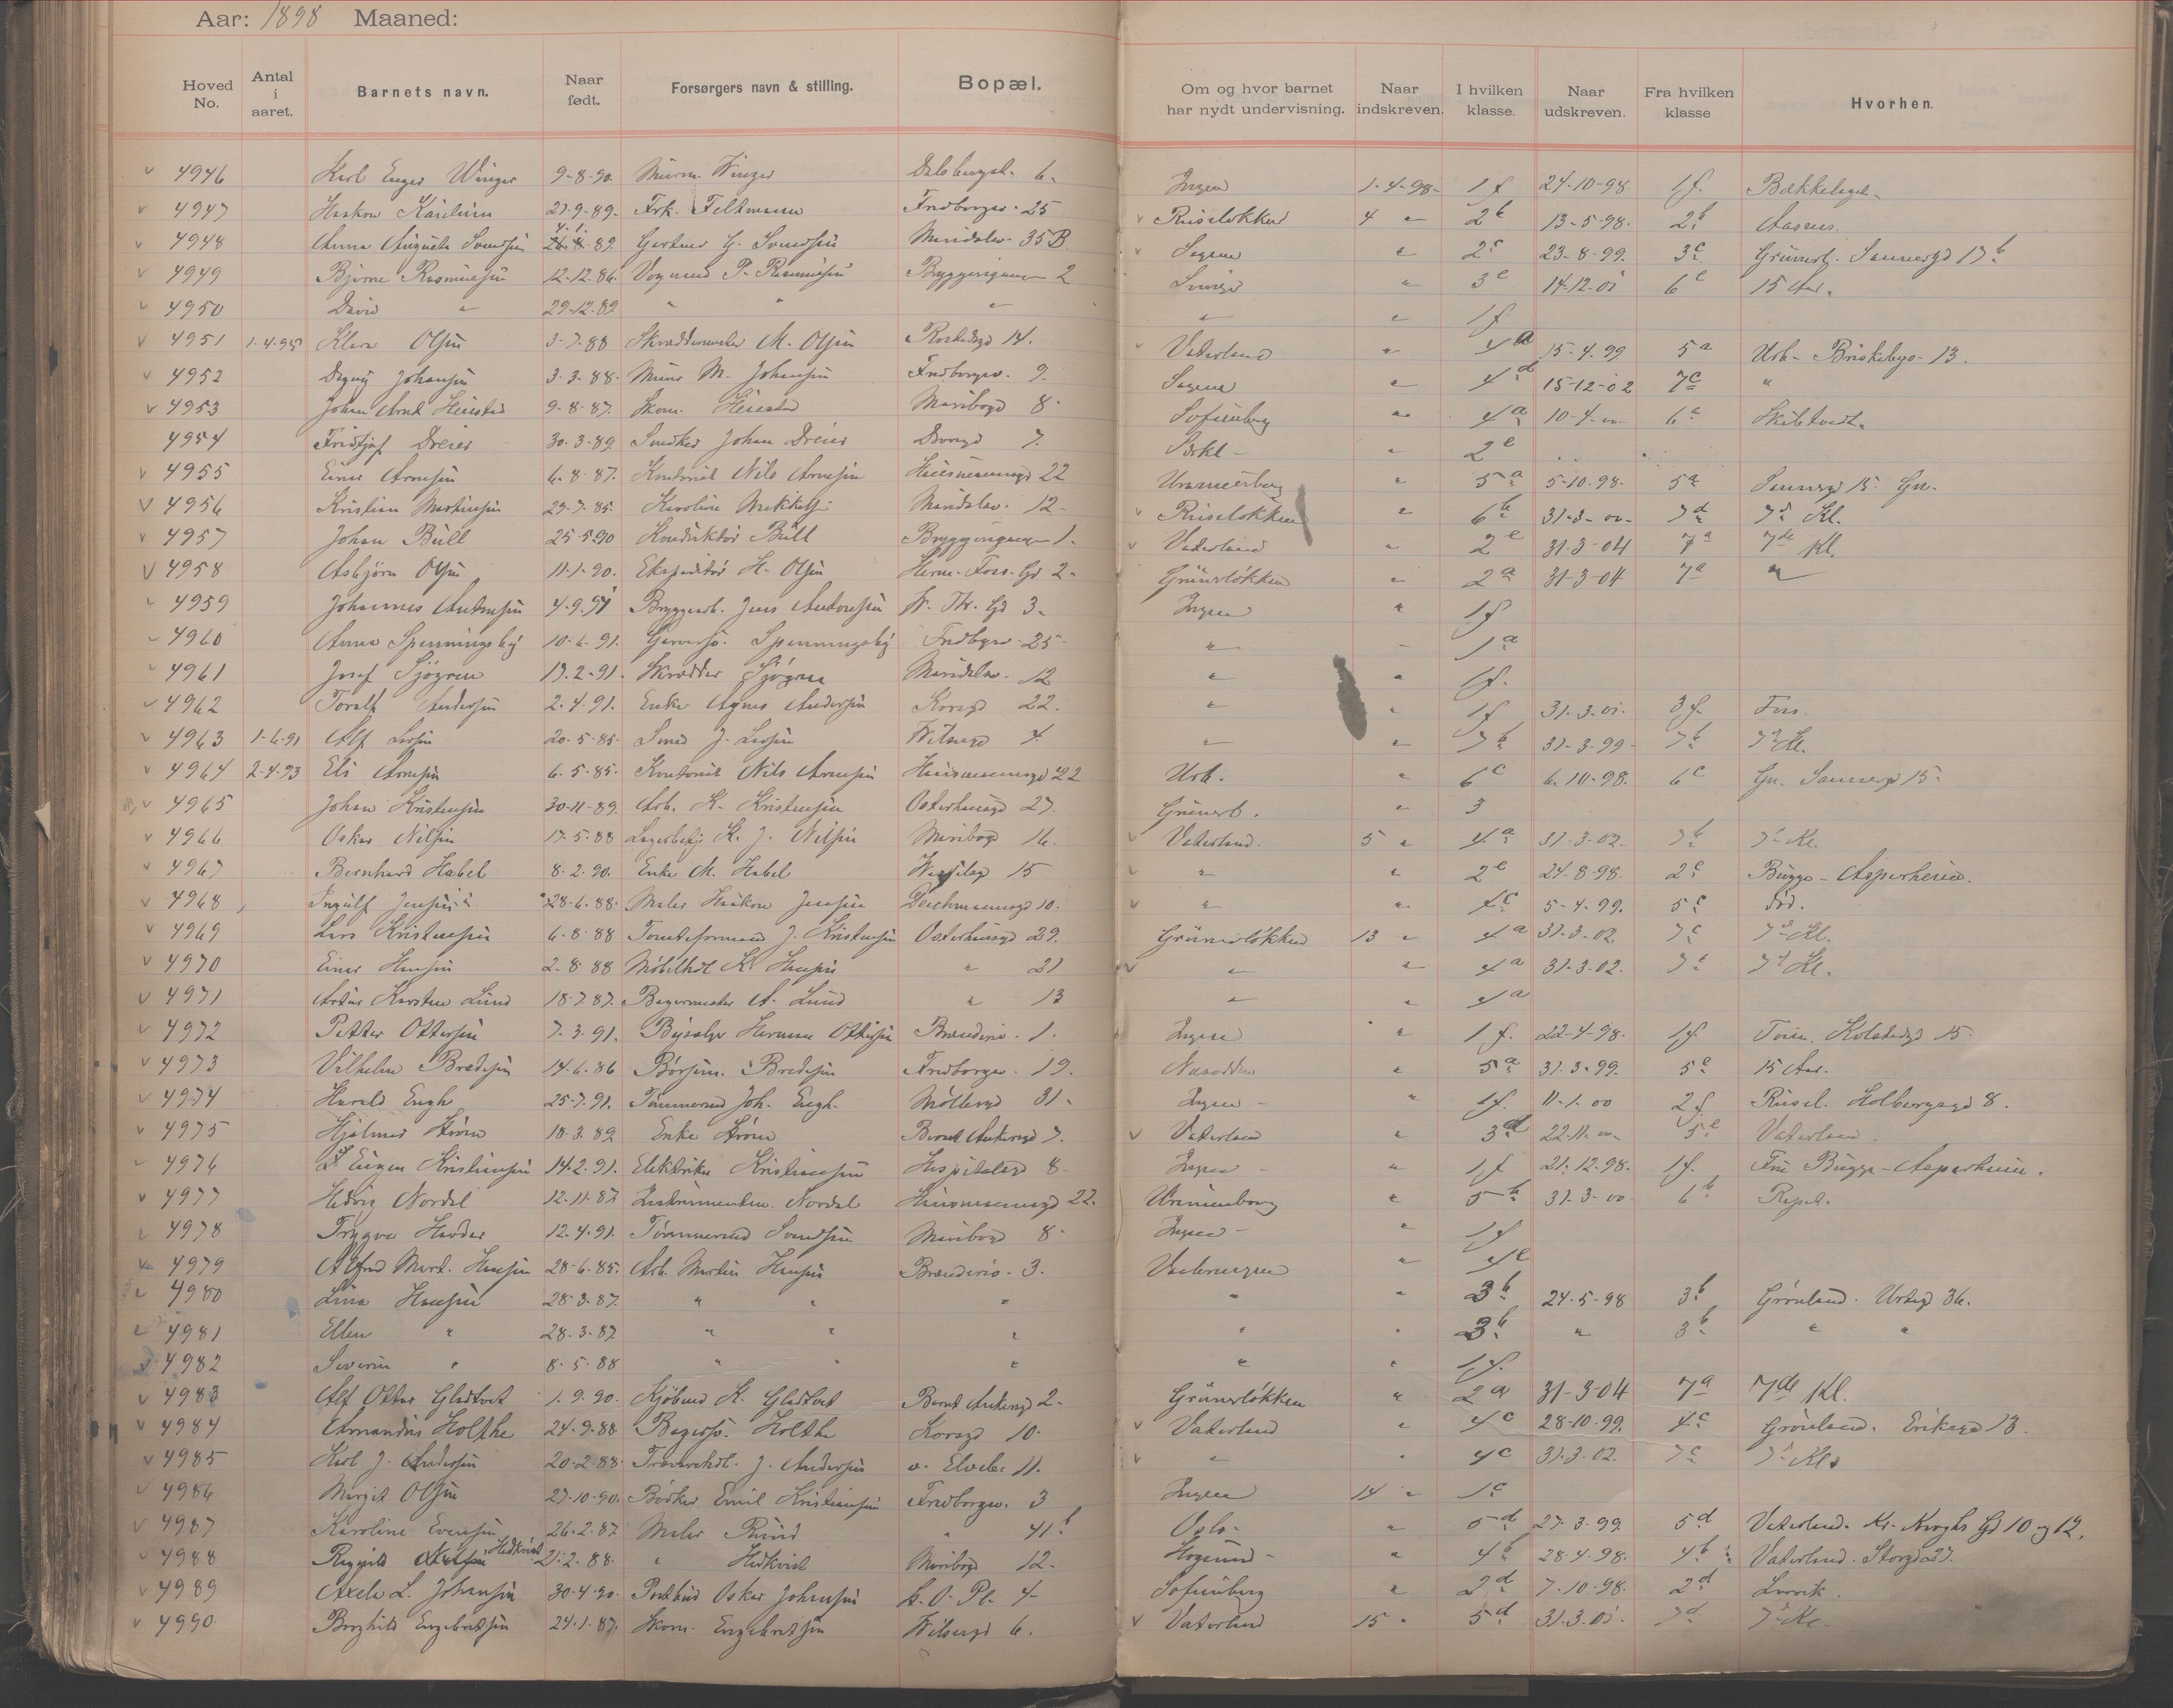 Aar: 1898 Maaned:
Hoved No. Antal i aaret. Barnets navn. Naar født. Forsørgers navn & stilling. Bopæl. Om og hvor barnet har nydt undervisning. Naar indskreven. I hvilken klasse. Naar udskreven. Fra hvilken klasse Hvorhen.
4946 Karl Enger Winger 9-8-90. Murm. Winger 6. Ingen 1-4-98- 1 f 24-10-98 1 f. Bækkelaget
4947 Haakon 27-9-89- Frk. Feltmann Fredborgv. 25 Ruseløkken 4 " 2 b 13-5-98. 2 b
4948 Anna Augusta Svendsen 89. Gartner G. Svendsen Maridalsv. 35B Sagene " 2 c 23-8-99. 3 c Grünerl. Sannergd 17 b
4949 Bjarne Rasmussen 12-12-86. Vognmd P. Rasmussen 2 " 3 e 14-12-01 6 e 15 Aar.
4950 David " 29-12-89 " " " " " 1 f
4951 1-4-95 Klara Olsen 3-7-88 Skræddermester M. Olsen 14. Vaterland " 4 a 15-4-99 5 a Urb- Briskebyv- 13.
4952 Dagny Johansen 3-3-88- Murer M. Johansen Fredborgv. 9. Sagene " 4 d 15-12-02 7 c "
4953 Johan Arnt 9-8-87. Skom. Maribogd 8- Sofienberg " 4 a 10-4-00 6 a
4954 Fridtjof Dreier 30-3-89 Snedker Johan Dreier 7. " 2 e
4955 Einar Arnesen 6-8-87. Kontorist Nils Arnesen Hausmannsgd 22 Uranienborg " 5 a 5-10-98- 5 a Sannergd 15 Gr.
4956 Kristian Martinsen 29-7-85- Karoline Mikkels. Maridalsv. 12- Ruseløkken " 6 b 31-3-00- 7 d 7 d Kl.
4957 Johan Bull 25-5-90 Konduktør Bull 1. Vaterland " 2 e 31-3-04 7 a 7de Kl.
4958 Asbjørn Olsen 11-1-90. Ekspeditør H. Olsen Herm. Foss. Gd 2- Grünerløkken " 2 a 31-3-04 7 a "
4959 Johannes Antonsen 4-9-91 Bryggearb. Jens Antonsen W. Thr. Gd 3- Ingen " 1 f
4960 Anna Spenningsby 10-6-91. Spenningsby Fredborgv. 25- " - 1 a
4961 Josef Sjögren 17-2-91. Skrædder Sjögren Maridalsv. 12 " " 1 f.
4962 Toralf Andersen 2-4-91. Enke Agnes Andersen Korsgd 22. " " 1 f 31-3-01. 3 f. Foss.
4963 1-6-91 Alf Larsen 20-5-85- Smed J. Larsen Wilsesgd 4. " " 7 b 31-3-99- 7 b 7d Kl.
4964 2-4-93 Eli Arnesen 6-5-85- Kontorist Nils Arnesen Hausmannsgd 22 Urb. " 6 c 6-10-98. 6 c Gr. Sannergd 15.
4965 Johan Kristensen 30-11-89. Arb. K. Kristensen Osterhausgd 27. Grünerl. " 3
4966 Oskar Nilsen 17-5-88 Lagerbetj. K. J. Nilsen Maribogd 16. Vaterland. 5 " 4 a 31-3-02- 7 b 7 d Kl.
4967 Bernhard Habel 8-2-90. Enke M. Habel Wesselsgd 15 " " 2 e 24-8-98. 2 e Bugge-Asperheim.
4968 Ingulf Jensen 28-6-88- Maler Haakon Jensen Deichmannsgd 10. " " 4 c 5-4-99. 5 c død.
4969 Lars Kristensen 6-8-88 Tomteformand J. Kristensen Osterhausgd 29. Grünerløkken 13 " 4 a 31-3-02 7 c 7 d Kl.
4970 Einar Hansen 2-8-88 Møbelhdl K. Hansen " 21 " " 4 a 31-3-02. 7 c 7 d Kl.
4971 Artur Karsten Lund 18-7-87. Bagermester A. Lund " 13 " " 4 a
4972 Petter Ottersen 7-3-91. Herman Ottersen 1. Ingen " 1 f. 22-4-98- 1 f. Kolstadgd 15
4973 Vilhelm Bredesen 14-6-86 Bredesen Fredborgv. 19. Næsodden " 5 a 31-3-99. 5 e 15 Aar.
4974 Harald Engh 25-7-91. Tømmermd Joh. Engh- Møllergd 31- Ingen - " 1 f. 11-1-00 2 f. Rusel. Holbergsgd 8.
4975 Hjalmar Strøm 18-3-89 Enke Strøm Bernt Ankersgd 7. Vaterland " 3 d 22-11-00- 5 e Vaterland.
4976 Eugen Kristiansen 14-2-91. Elektriker Kristiansen Hospitalsgd 8- Ingen - " 1 f 21-12-98- 1 f. Bugge-Asperheim.
4977 Hedvig Nordal 12-11-87 Instrumentm. Nordal Hausmannsgd 22. Uranienborg " 5 b 31-3-00- 6 b
4978 Trygve 12-4-91. Tømmermd Svendsen Maribogd 8- Ingen - " 1 f
4979 Alfred Mart. Hansen 28-6-85. Arb. Martin Hansen 3. " 4 e
4980 Lina Hansen 28-3-87. " " " " " 3 b 24-5-98 3 b Grønland. Urtegd 36.
4981 Ellen " 28-3-87 " " " " " 3 b " 3 b " "
4982 Severin " 8-5-88 " " " " " 1 f.
4983 Alf Ottar Gladtvet 1-9-90. Kjøbmd K. Gladtvet Bernt Ankersgd 2- Grünerløkken " 2 a 31-3-04 7 a 7de Kl.
4984 Amandus Holthe 24-9-88 Holthe Korsgd 10- Vaterland " 4 c 28-10-99. 4 c Grønland. Eriksgd 13.
4985 Karl J. Andersen 20-2-88- Trævarehdl. J. Andersen 11. " " 4 c 31-3-02. 7 c 7 d Kl.
4986 Margit Olsen 27-10-90. Bødker Emil Kristiansen Fredborgv. 3 Ingen 14 " 1 c
4987 Karoline Evensen 26-2-87 Maler Rund " 41 b Oslo- " 5 d 27-3-99. 5 d Vaterland. Kr. Kroghs Gd 10 og 12.
4988 Ragnhild Hedkvist 21-2-88- " Hedkvist Maribogd 12. " 4 b 28-4-98. 4 b Vaterland. Storgd 27.
4989 Axela L. Johansen 30-4-90- Postbud Oskar Johansen L. O. Pl. 4- Sofienberg " 2 d 7-10-98. 2 d Larvik.
4990 Borghild Engebretsen 24-1-87. Skom. Engebretsen Wilsesgd 6. Vaterland 15 " 5 d 31-3-01. 7 d 7 d Kl.